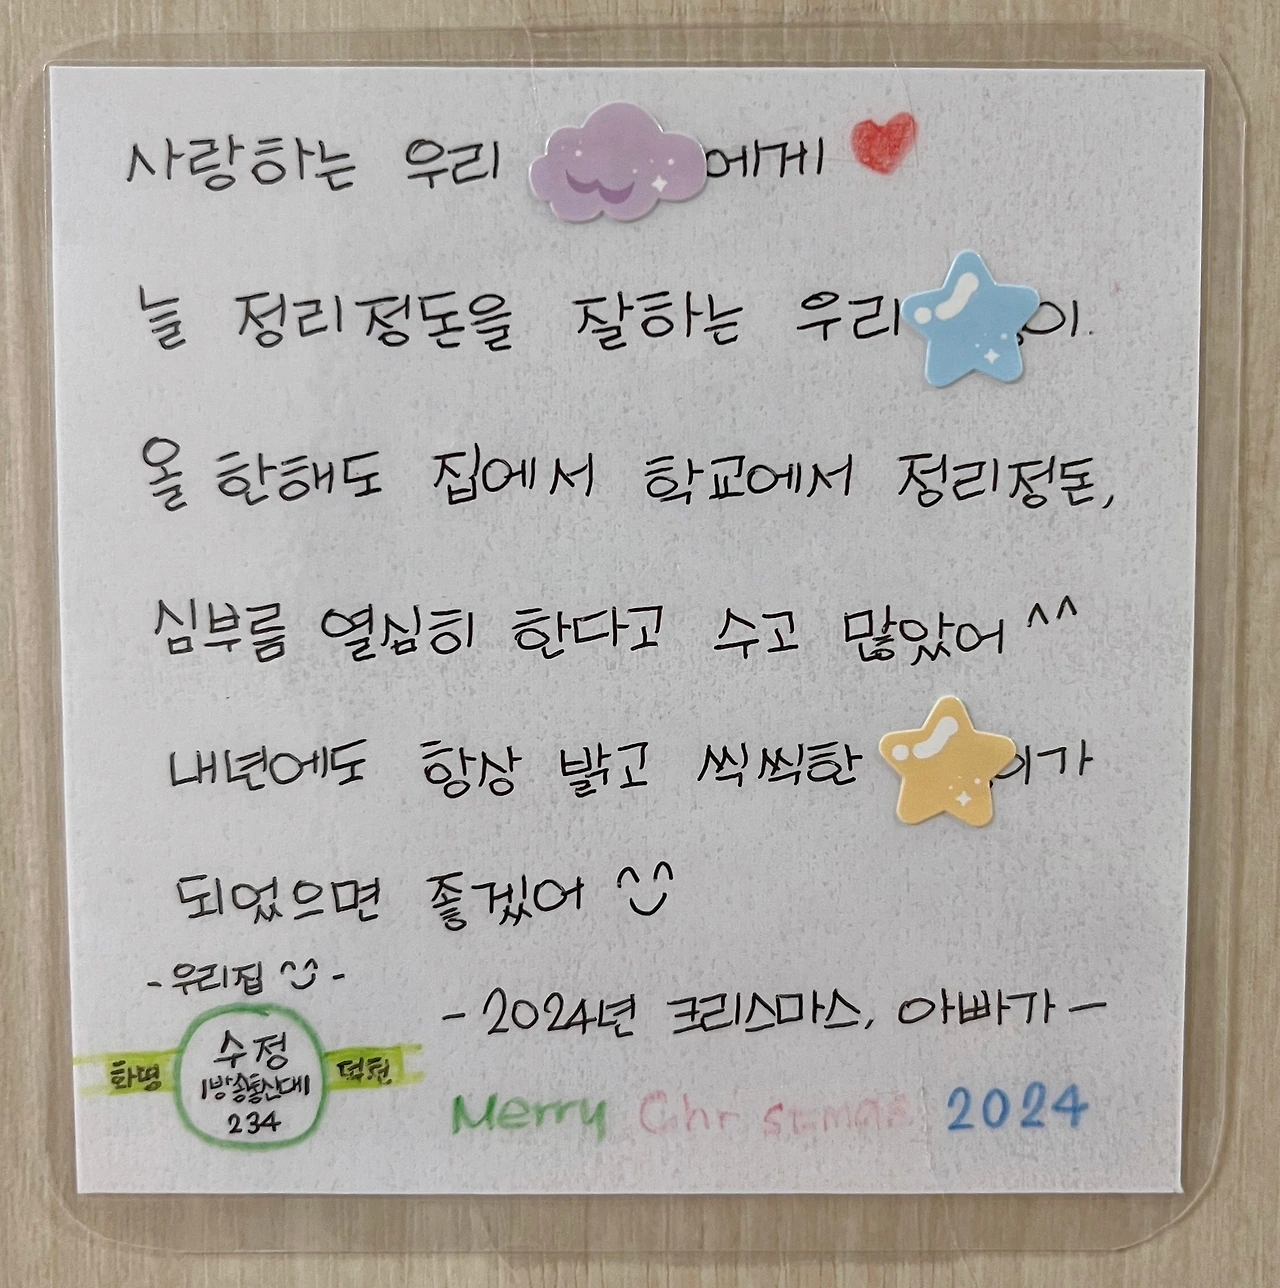 사랑하는 우리 에게
늘 정리정돈을 잘하는 우리 이.
올 한해도 집에서 학교에서 정리정돈,
심부름 열심히 한다고 수고 많았어 ^^
내년에도 항상 밝고 씩씩한 이가
되었으면 좋겠어 ^^
- 우리집 -
- 2024년 크리스마스, 아빠가 -
화명 수정 덕천
(방송통신대)
234
Merry Christmas 2024